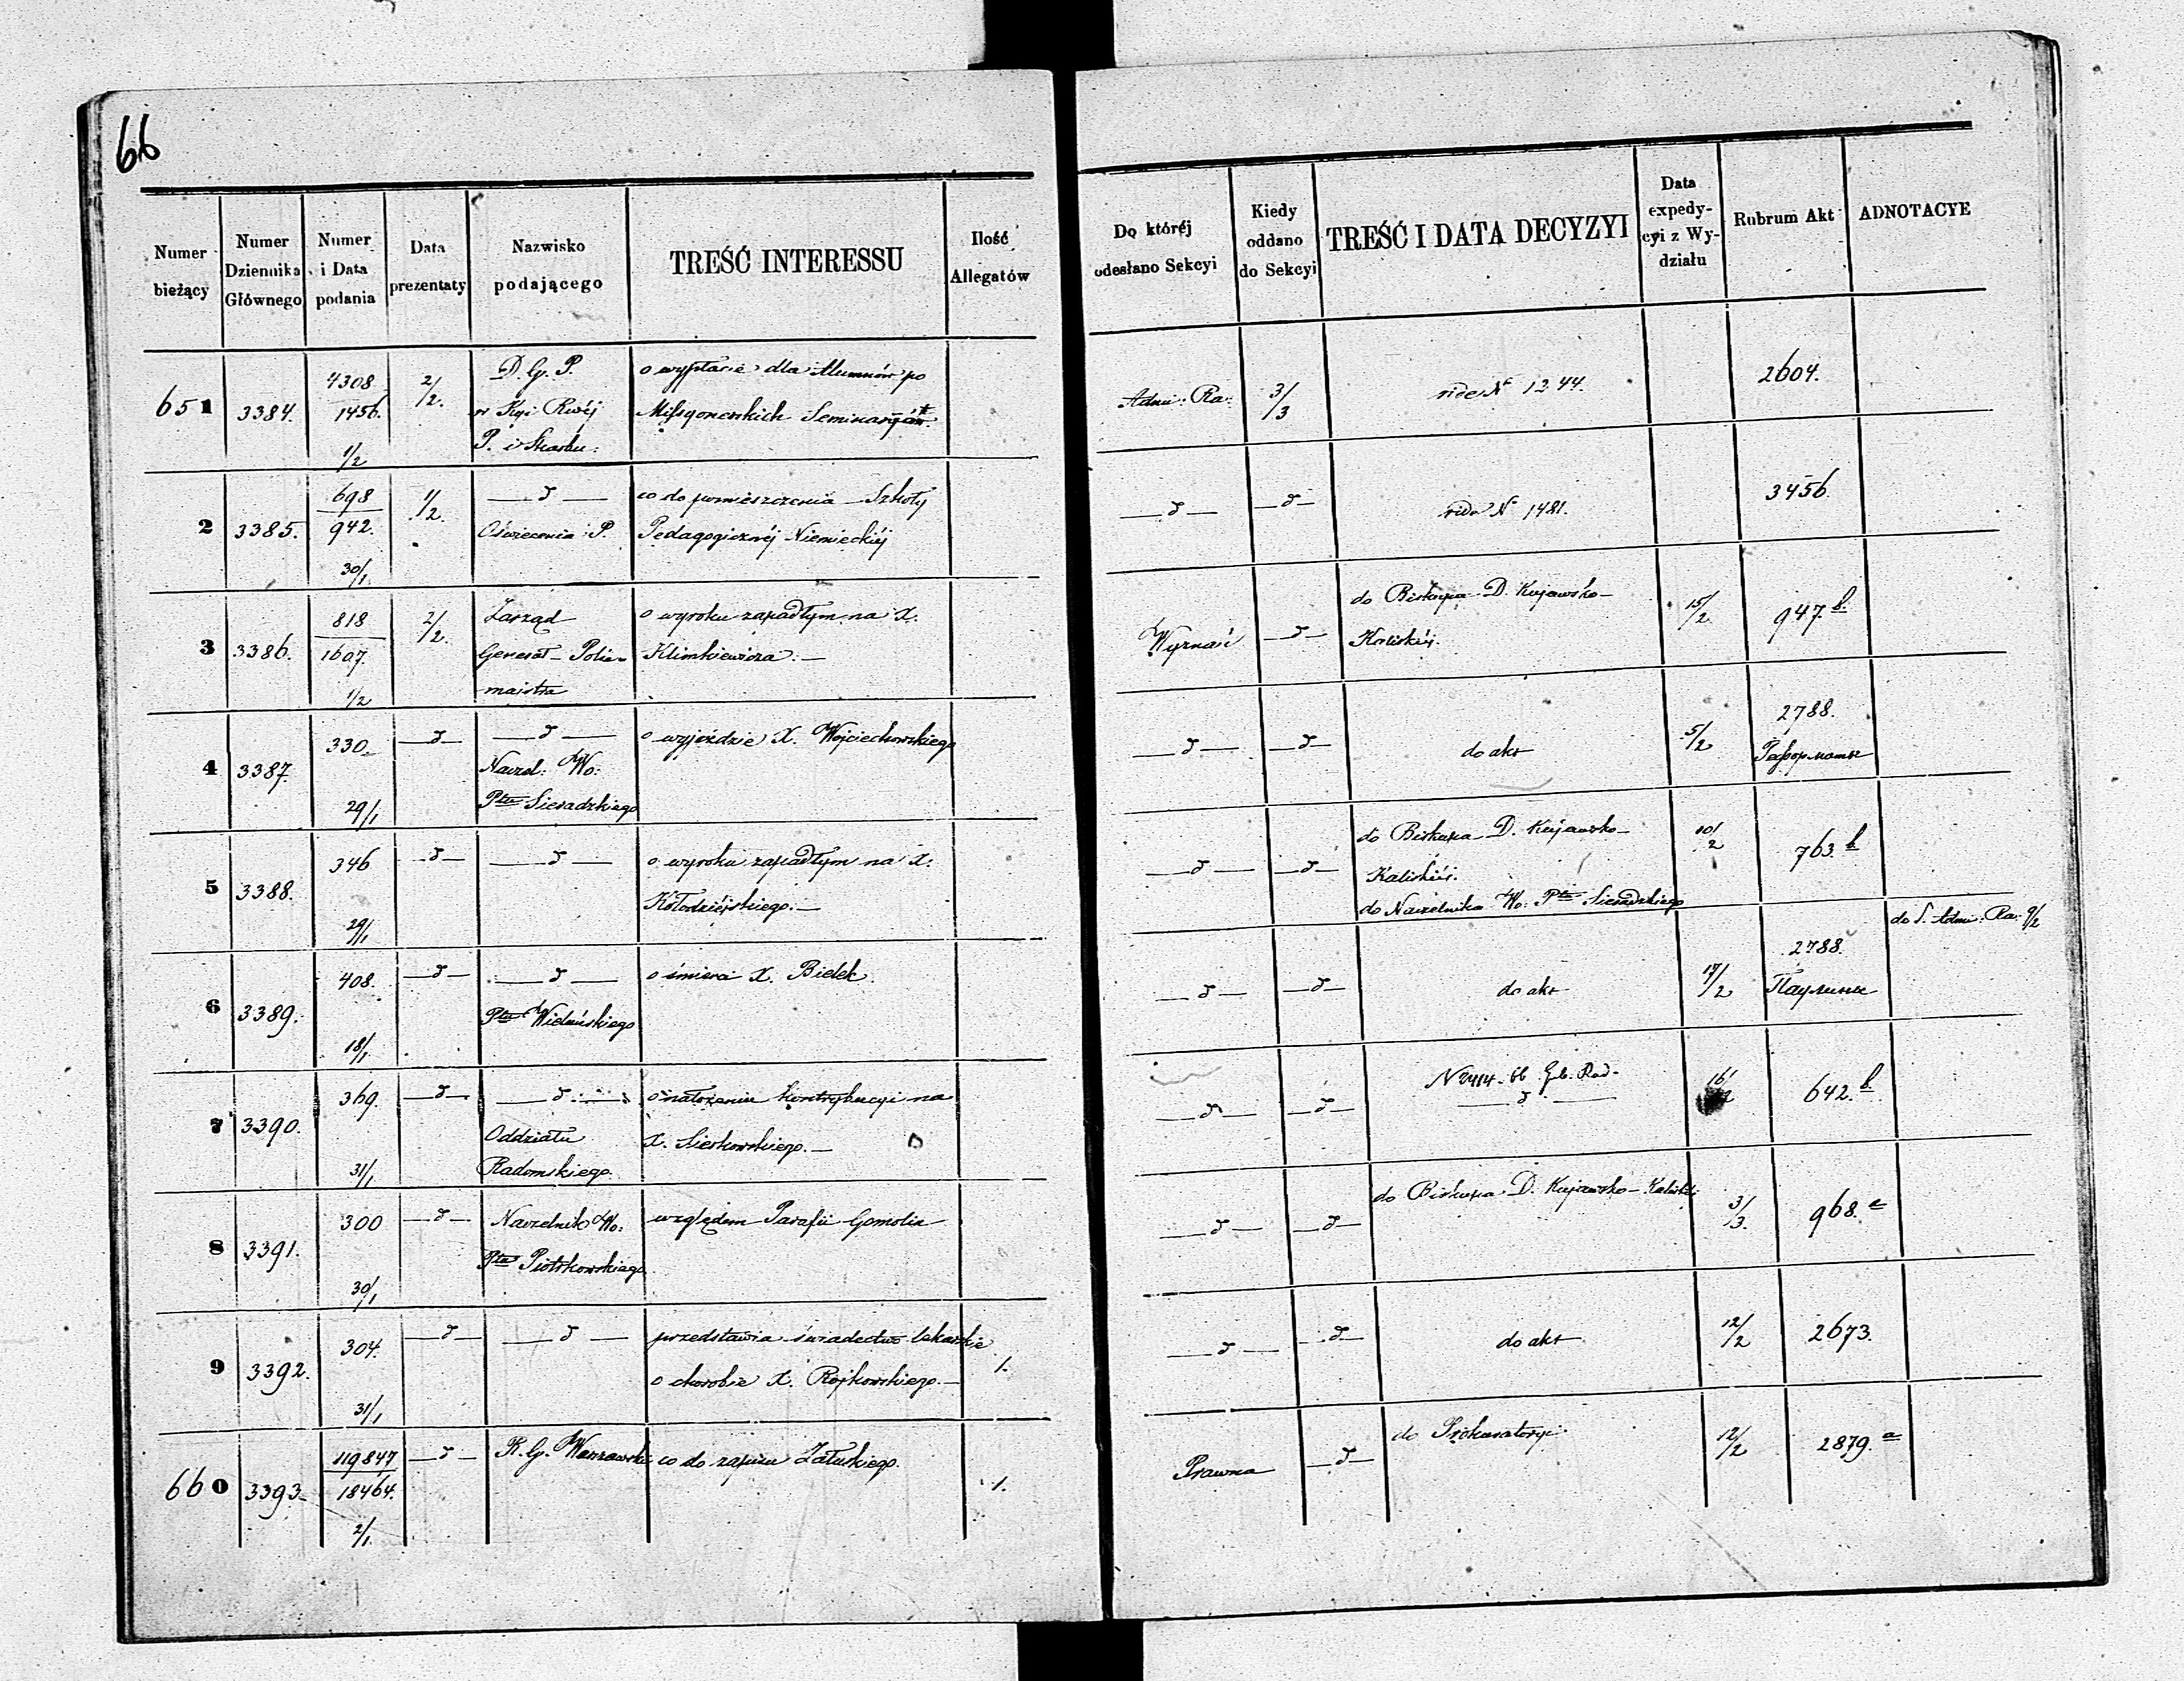 66
Numer bieżący | Numer Dziennika Głównego | Numer i Data podania | Data prezentaty | Nazwisko podającego | TREŚĆ INTERESSU | Ilość Allegatów | Do któréj odesłano Sekcyi | Kiedy oddano do Sekcyi | TREŚĆ I DATA DECYZYI | Data expedycyi z Wydziału | Rubrum Akt | ADNOTACYE
651 | 3384. | 4308 1456. 1/2 | 2/2. | D. G. P.
w Kyi Rwéj
P. i Skarbu: | o wypłacie dla Alumnów po
Missyonarskich | Admi: Ra: | 3/3 | vide № 1244. | 2604.
2 | 3385. | 698 942. 30/1 | 1/2. | —d—
Oświecenia P. | co do pomieszczenia Szkoły
Pedagogicznéj Niemieckiéj | —d— | —d— | vide № 1481. | 3456
3 | 3386. | 818 1607. 1/2 | 2/2. | Zarząd
Generał-Polic-
majstra | o wyroku zapadłym na X.
Klimkiewicza.— | Wyznań | —d— | do Biskupa D. Kujawsko-
Kaliskiéj. | 15/2 | 947. b.
4 | 3387. | 330. 29/1 | —d— | —d—
Naczel: Wo:
Ptu Sieradzkiego | o wyjeździe X. Wojciechowskiego | —d— | —d— | do akt | 5/2 | 2788.
5 | 3388. | 346 29/1 | —d— | —d— | o wyroku zapadłym na X.
Kołodziéjskiego.— | —d— | —d— | do Biskupa D. Kujawsko-
Kaliskiéj.
do Naczelnika Wo: Ptu Sieradzkiego | 10/2 | 763. b
6 | 3389. | 408. 18/1 | —d— | —d—
Ptu Wieluńskiego | o śmierci X. Bielek | —d— | —d— | do akt | 17/2 | 2788.
Паулины | do S. Admi: Ra: 9/2
7 | 3390. | 369. 31/1 | —d— | —d—
Oddziału
Radomskiego. | o nałożeniu kontrybucyi na
X. Sierkowskiego.— | —d— | —d— | N 2414-66 Gub. Rad.
—d— | 16/2 | 642. b.
8 | 3391. | 300 30/1 | —d— | Naczelnik Wo:
Ptu Piotrkowskiego | względem Parafii Gomolin | —d— | —d— | do Biskupa D. Kujawsko-Kaliskiéj | 3/3. | 968.
9 | 3392. | 304. 31/1 | —d— | —d— | przedstawia świadectwo lekarskie
o chorobie X. Rojkowskiego.— | 1. | —d— | —d— | do akt | 12/2 | 2673.
660 | 3393. | 119847 18464. 2/1. | —d— | R. G. Warszawski | co do zapisu Załuskiego. | 1. | Prawna | —d— | do Prokuratoryi. | 12/2 | 2879. a